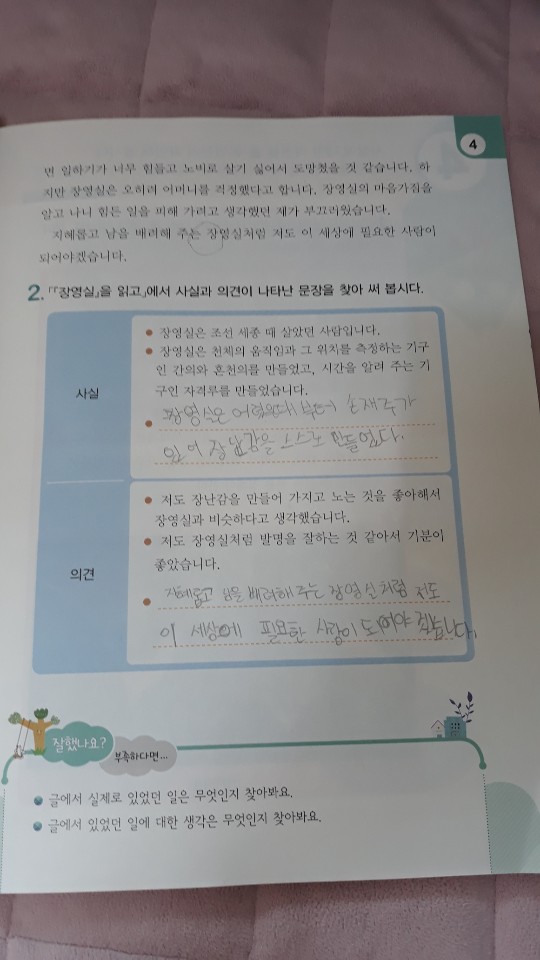 4
면 일하기가 너무 힘들고 노비로 살기 싫어서 도망쳤을 것 같습니다. 하
지만 장영실은 오히려 어머니를 걱정했다고 합니다. 장영실의 마음가짐을
알고 나니 힘든 일을 피해 가려고 생각했던 제가 부끄러웠습니다.
지혜롭고 남을 배려해 주는 장영실처럼 저도 이 세상에 필요한 사람이
되어야겠습니다.
2. 「『장영실』을 읽고」에서 사실과 의견이 나타난 문장을 찾아 써 봅시다.
사실
장영실은 조선 세종 때 살았던 사람입니다.
장영실은 천체의 움직임과 그 위치를 측정하는 기구
인 간의와 혼천의를 만들었고, 시간을 알려 주는 기
구인 자격루를 만들었습니다.
장영실은 어렸을때 부터 손재주가
있어 장난감을 스스로 만들었다.
의견
저도 장난감을 만들어 가지고 노는 것을 좋아해서
장영실과 비슷하다고 생각했습니다.
저도 장영실처럼 발명을 잘하는 것 같아서 기분이
좋았습니다.
지혜롭고 남을 배려해 주는 장영실처럼 저도
이 세상에 필요한 사람이 되어야 겠습니다.
잘했나요?
부족하다면...
글에서 실제로 있었던 일은 무엇인지 찾아봐요.
글에서 있었던 일에 대한 생각은 무엇인지 찾아봐요.